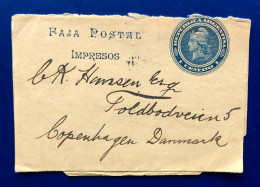 FAJA POSTAL
IMPRESOS
REPUBLICA ARGENTINA
1 CENTAVO 1
C.K. Hanssen Esq
Toldbodveien 5
Copenhagen Danmark